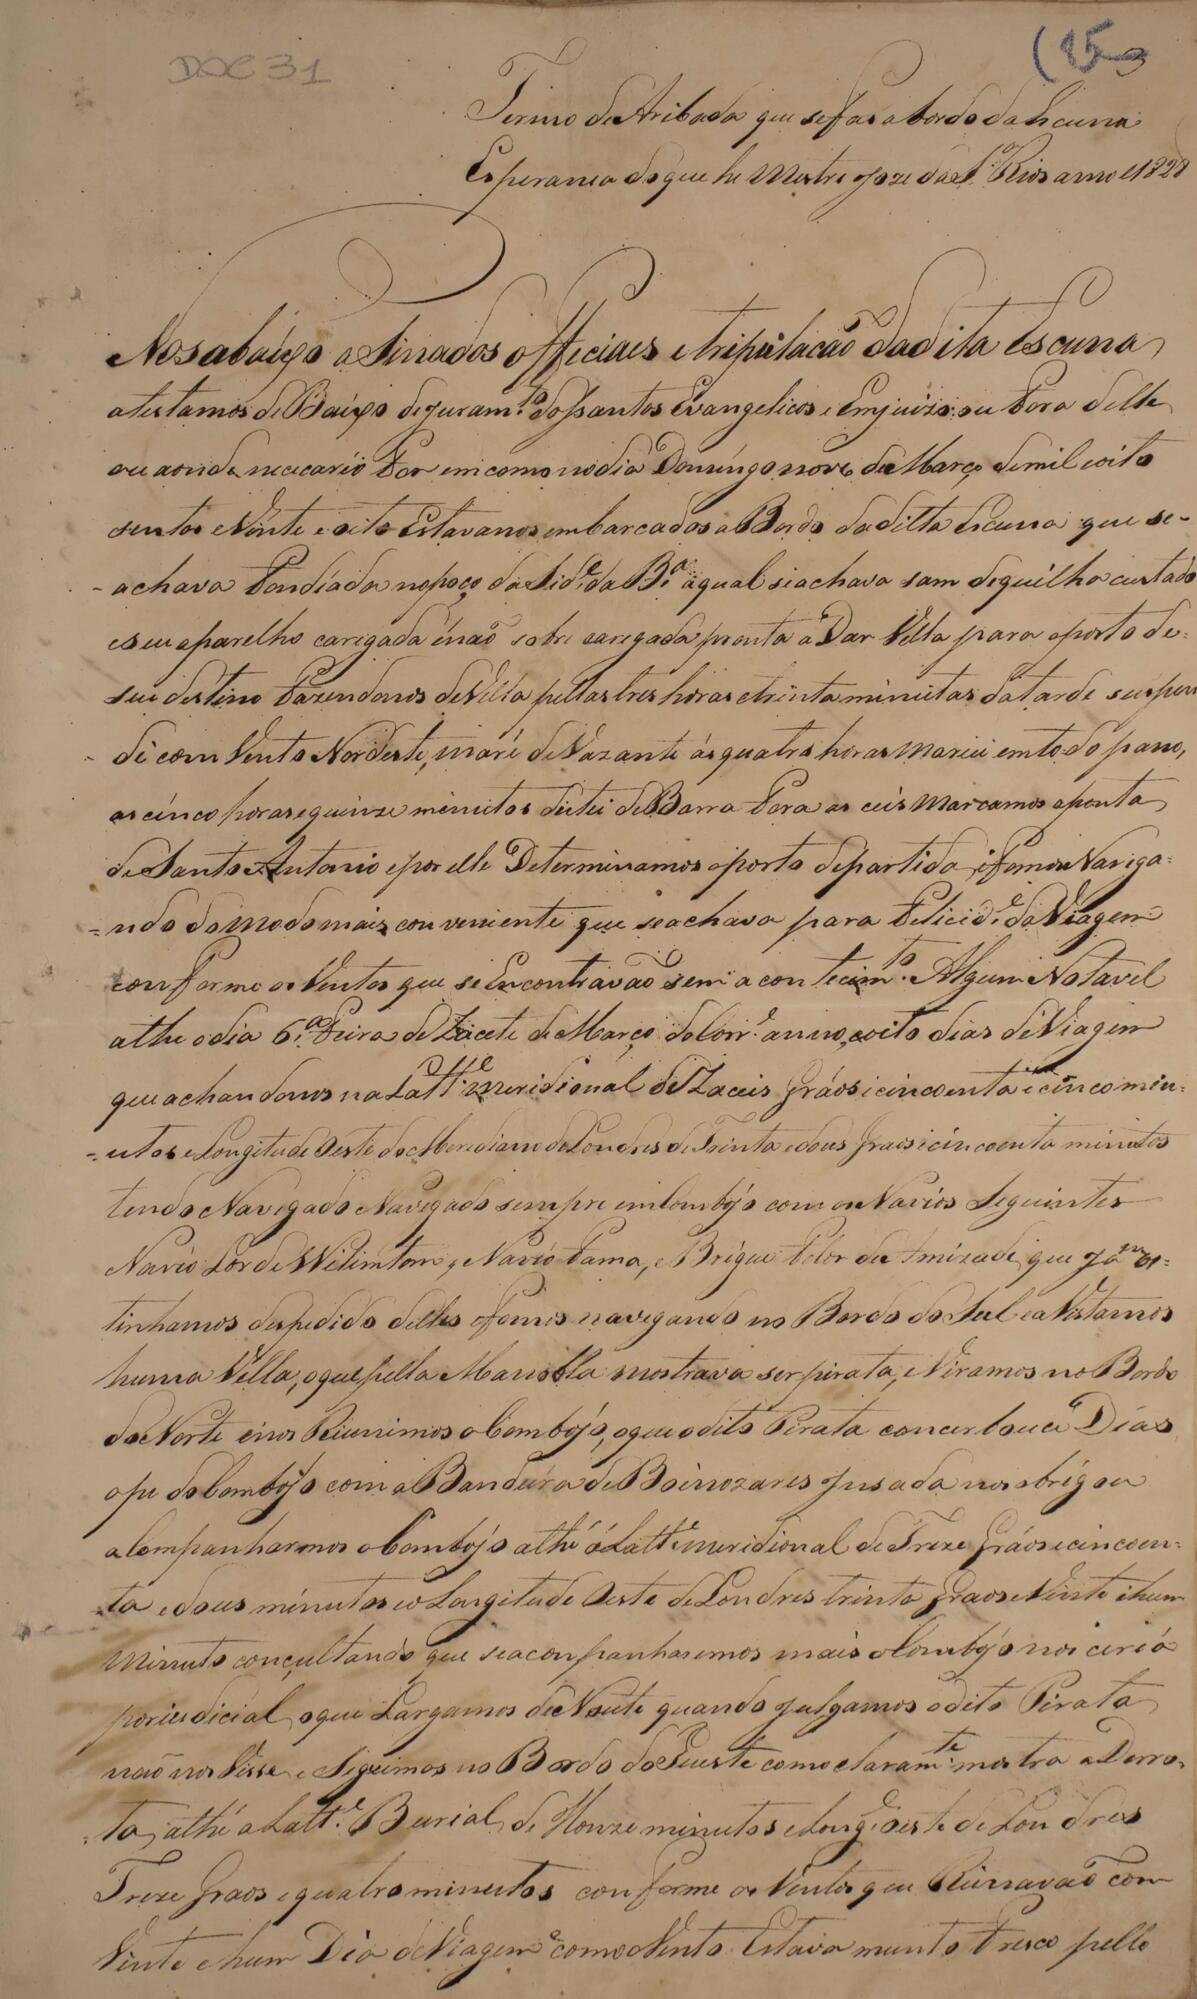 DOC 31
(15
Termo de Aribada que se fas abordo da hscuna
Esperanca do que he Mestre Joze da S.ª Rios anno d 1828
Nos abaixo a Sinados officiaes e tripulacaõ da dita Escuna
atestamos de Baixo de juram.to dos Santos Evangelicos e Em juizo ou Fora delle
ou aonde nececario For em como no dia Domingo nove de Março de mil e oito
sentos e Vinte e oito Estavanos embarcados a Bordo da ditta Escuna que se-
achava Fondiada no poço da Sid.e da B.ª a qual si achava sam de quilha custado
e seu aparelho caregada é naõ sobre caregada pronta a Dar Vella para o porto de-
seu destino Fazendonos de Vella pellas tres horas e trinta minutas da tarde suspen
di com Vento Nordeste, maré de Vazante ás quatro horas Mariei em todo pano,
as cinco horas e quinze minutos deitei de Barra Fora as ceis Marcamos a ponta
de Santo Antonio e por elle Determinamos o porto de partida e Fomos Naviga-
ndo do modo mais conveniente que se achava para Felicid.e da Viagem
conforme os Ventos que se Encontravaõ sem acontecim.to Algum Notavel
athe o dia 6.ª Feira de Zacete de Março do Corr.e anno, e oito dias de Viagem
que achandonos na Latt.e meridional de Zaceis Gráos e cincoenta e cinco min-
utos e Longitude Oeste do Meridiano de Londres de Trinta e dous graos e cincoenta minutos
tendo Navegado Navegado sempre em Comboýo com os Navios Seguintes
Navio Lorde Wilimtom, e Navio Fama, e Brigue Félor da Amizade, que já nos
tinhamos despedido delles e fomos navegando no Bordo do Sul e a Vistamos
huma Vella, o que pella Manobla mostrava ser pirata, e Viramos no Bordo
do Norte e nos Riunimos o Comboýo, o que o dito Pirata concerbou a Dias
o pe do Comboýo com a Bandeira de Boinozares Jusada nos obrigou
a Companharmos o Comboýo athé á Latt.e meridional de Treze Gráos e cincoen-
ta e dous minutos e o Longitude Oeste de Londres trinta graos e Vinte e hum
Minuto concultando que se acompanharemos mais o Comboýo nos ceria
perjudicial, o que Largamos de Noute quando julgamos o dito Pirata
naõ nos Visse e Seguimos no Bordo do Leuste como claram.te mostra a Derro-
ta, athé a Latt.e Burial de Honze minutos e Long.e oeste de Londres
Treze Graos e quatro minutos conforme os Ventos que Riinavaõ com
Vinte e hum Dia de Viagem e como o Vento Estava munto Fresco pello